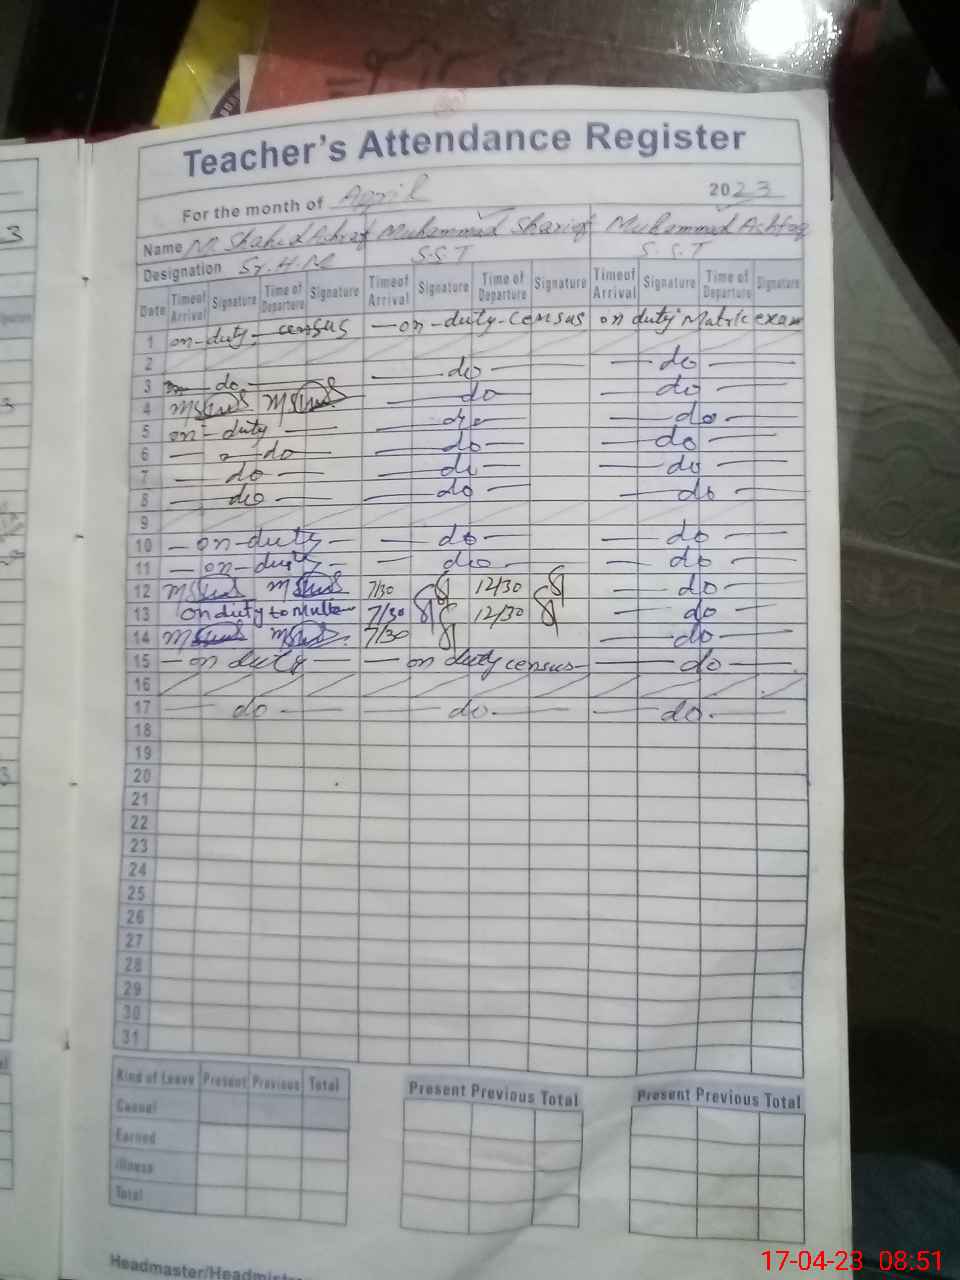 Teacher's Attendance Register
For the month of April 2023
Name M. Shahid Ashraf Muhammad Sharief Muhammad Ashfaq
Designation Sr. H. M S.S.T S.S.T
Date Timeof Arrival Signature Time of Departure Signature Timeof Arrival Signature Time of Departure Signature Timeof Arrival Signature Time of Departure Signature
1 on-duty-census - on-duty-census on duty Matric exam
2 do do
3 do do do
4 do do
5 on-duty do do
6 do do do
7 do do do
8 do do do
9
10 - on-duty - do do
11 - on-duty - do do
12 7/30 12/30 do
13 on duty to 7/30 12/30 do
14 7/30 do
15 - on duty - on duty census - do
16
17 do do do
18
19
20
21
22
23
24
25
26
27
28
29
30
31
Kind of Leave Present Previous Total Present Previous Total Present Previous Total
Casual
Earned
Illness
Total
17-04-23 08:51